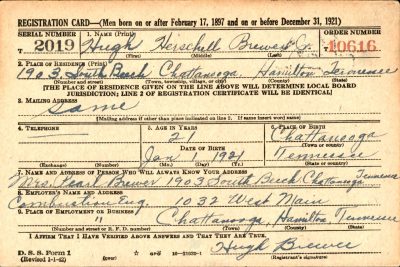 REGISTRATION CARD—(Men born on or after February 17, 1897 and on or before December 31, 1921)
SERIAL NUMBER 1. NAME (Print) ORDER NUMBER
T 2019 Hugh Herschell Brewer Jr. 10616
(First) (Middle) (Last)
2. PLACE OF RESIDENCE (Print)
1903 South Beech Chattanooga, Hamilton Tennessee
(Number and street) (Town, township, village, or city) (County) (State)
[THE PLACE OF RESIDENCE GIVEN ON THE LINE ABOVE WILL DETERMINE LOCAL BOARD
JURISDICTION; LINE 2 OF REGISTRATION CERTIFICATE WILL BE IDENTICAL]
3. MAILING ADDRESS
Same
[Mailing address if other than place indicated on line 2. If same insert word same]
4. TELEPHONE 5. AGE IN YEARS 6. PLACE OF BIRTH
21 Chattanooga
DATE OF BIRTH (Town or county)
Jan 1 1921 Tennessee
(Exchange) (Number) (Mo.) (Day) (Yr.) (State or country)
7. NAME AND ADDRESS OF PERSON WHO WILL ALWAYS KNOW YOUR ADDRESS
Mrs. Brewer 1903 South Beech Chattanooga Tennessee
8. EMPLOYER'S NAME AND ADDRESS
Combustion Eng. 1032 West Main
9. PLACE OF EMPLOYMENT OR BUSINESS
" Chattanooga, Hamilton Tennessee
(Number and street or R. F. D. number) (Town) (County) (State)
I AFFIRM THAT I HAVE VERIFIED ABOVE ANSWERS AND THAT THEY ARE TRUE.
Hugh Brewer
D. S. S. Form 1
(Revised 1-1-42) (over) (Registrant's signature)